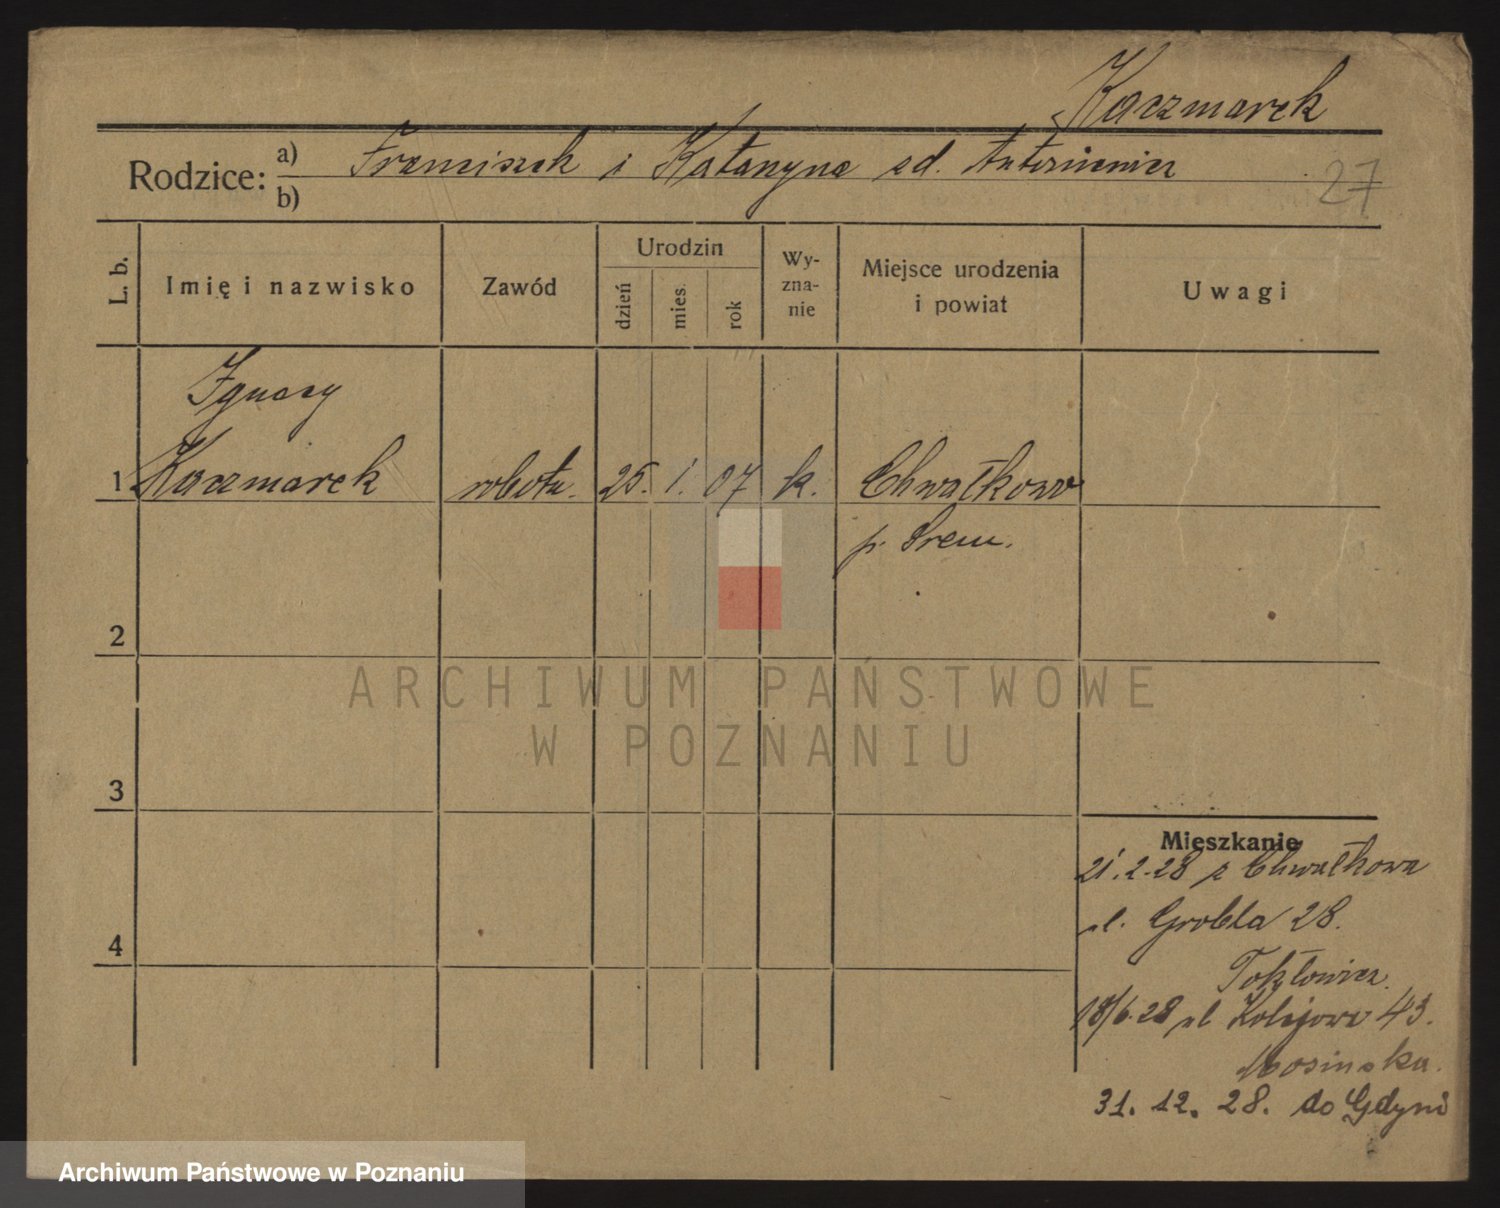 Kaczmarek
Rodzice: a) Franciszek i Katarzyna zd. Antoniewicz
b)
27
L. b.
Imię i nazwisko
Zawód
Urodzin
dzień
mies.
rok
Wy-
zna-
nie
Miejsce urodzenia
i powiat
Uwagi
Ignacy
1 Kaczmarek robotn. 25. 1. 07 k. Chwałkowo
p. Śrem.
2
ARCHIWUM PAŃSTWOWE
W POZNANIU
3
4
Mieszkanie
21.2.28 z Chwałkowa
ul. Grobla 28.
18/6.28 ul Kolejowa 43.
Mosińska.
31. 12. 28. do Gdyni
Archiwum Państwowe w Poznaniu